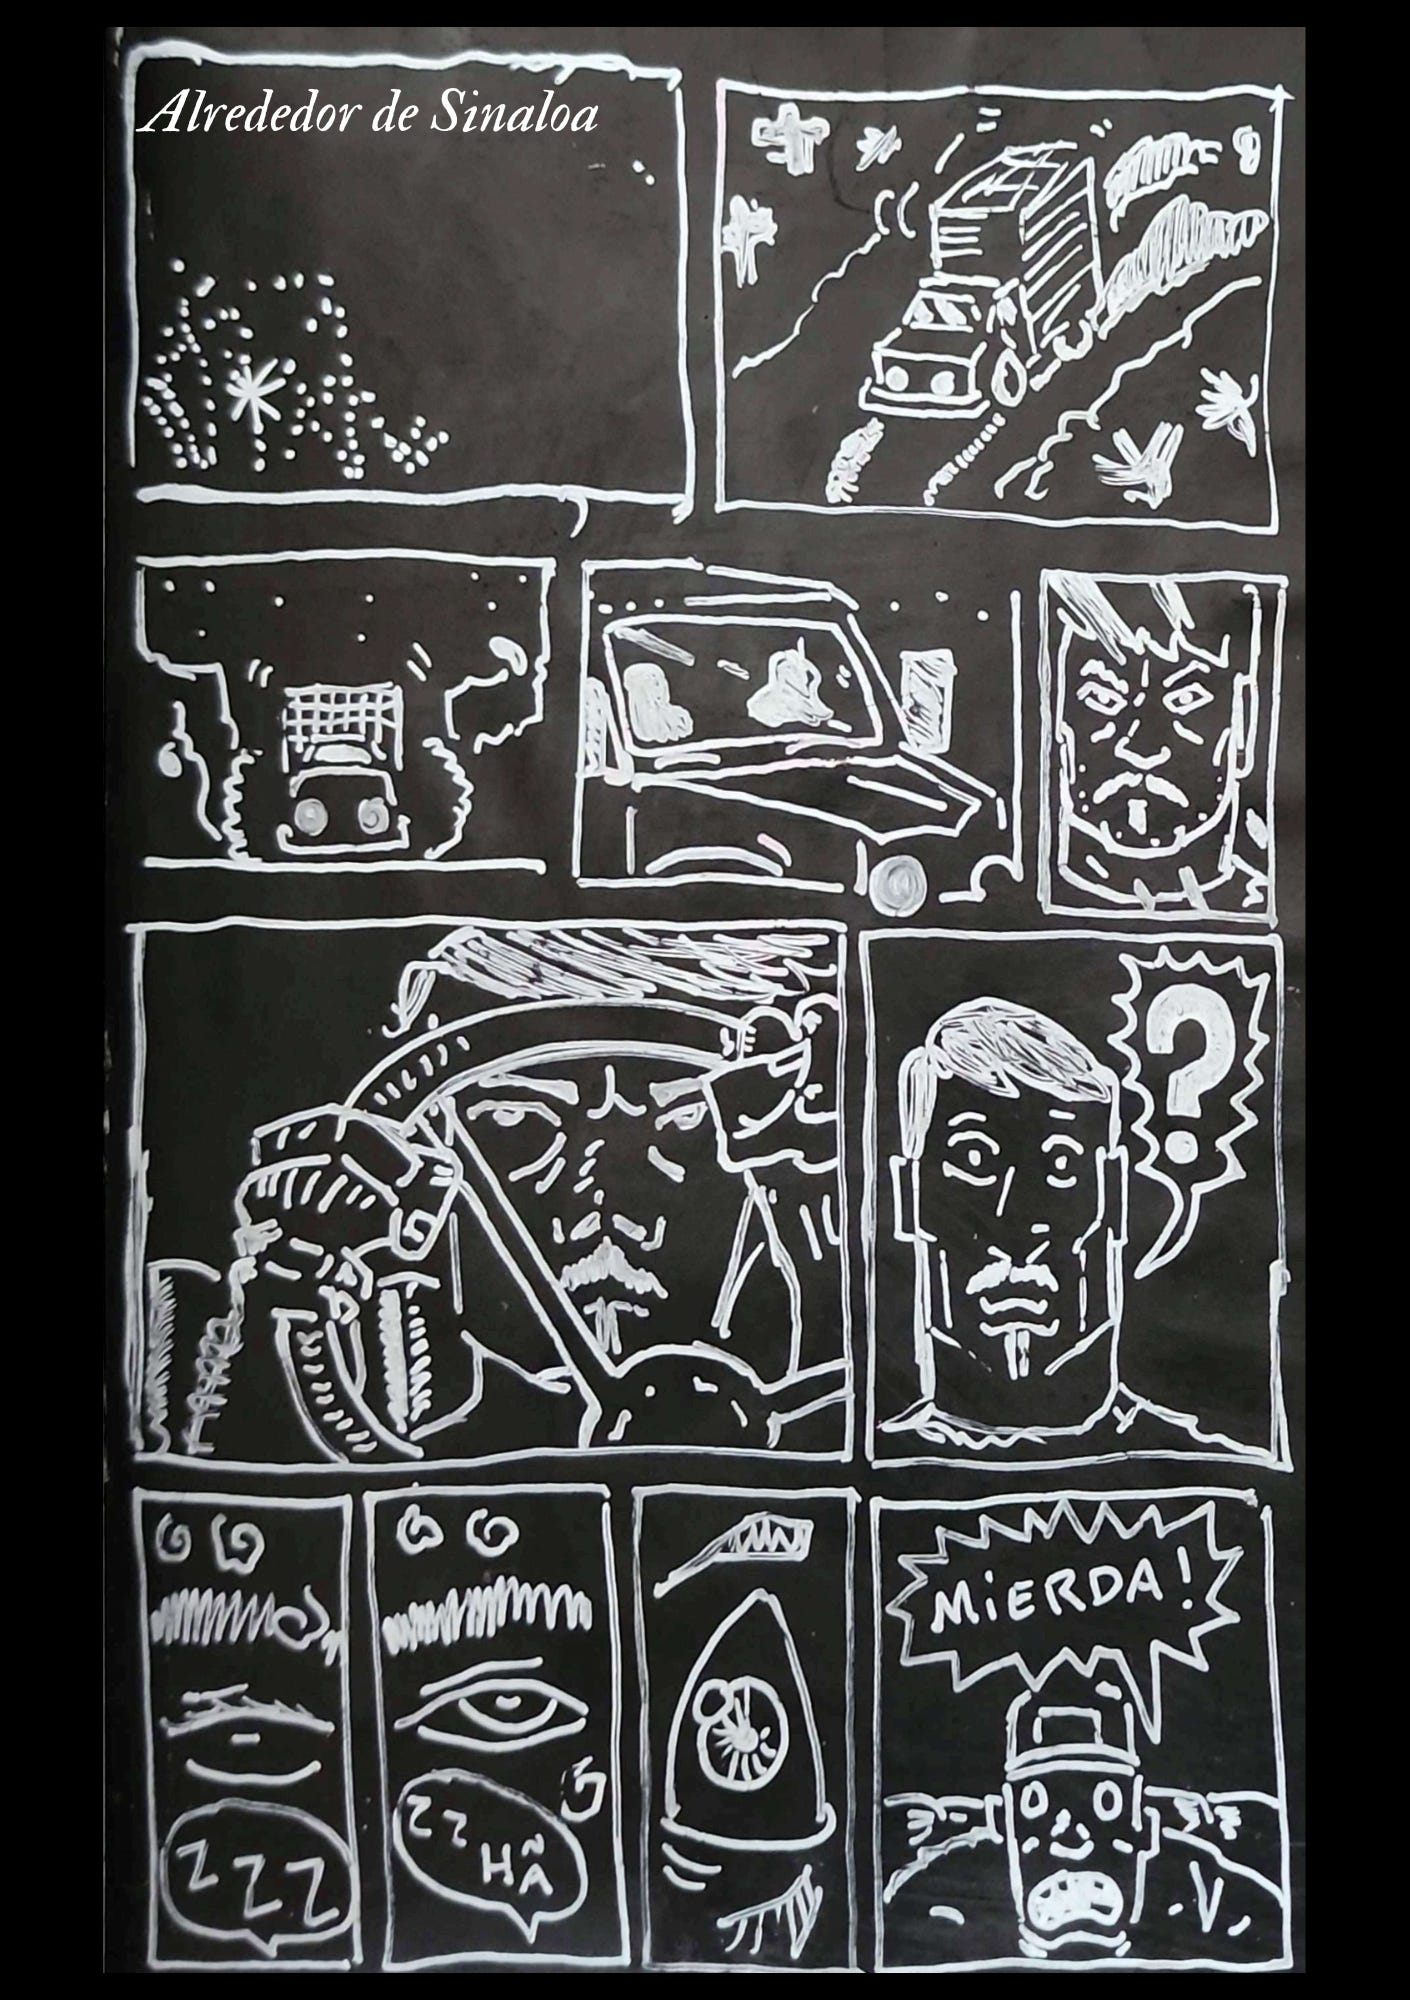 Alrededor de Sinaloa
?
ZZZ
ZZ
HÃ
MiERDA!